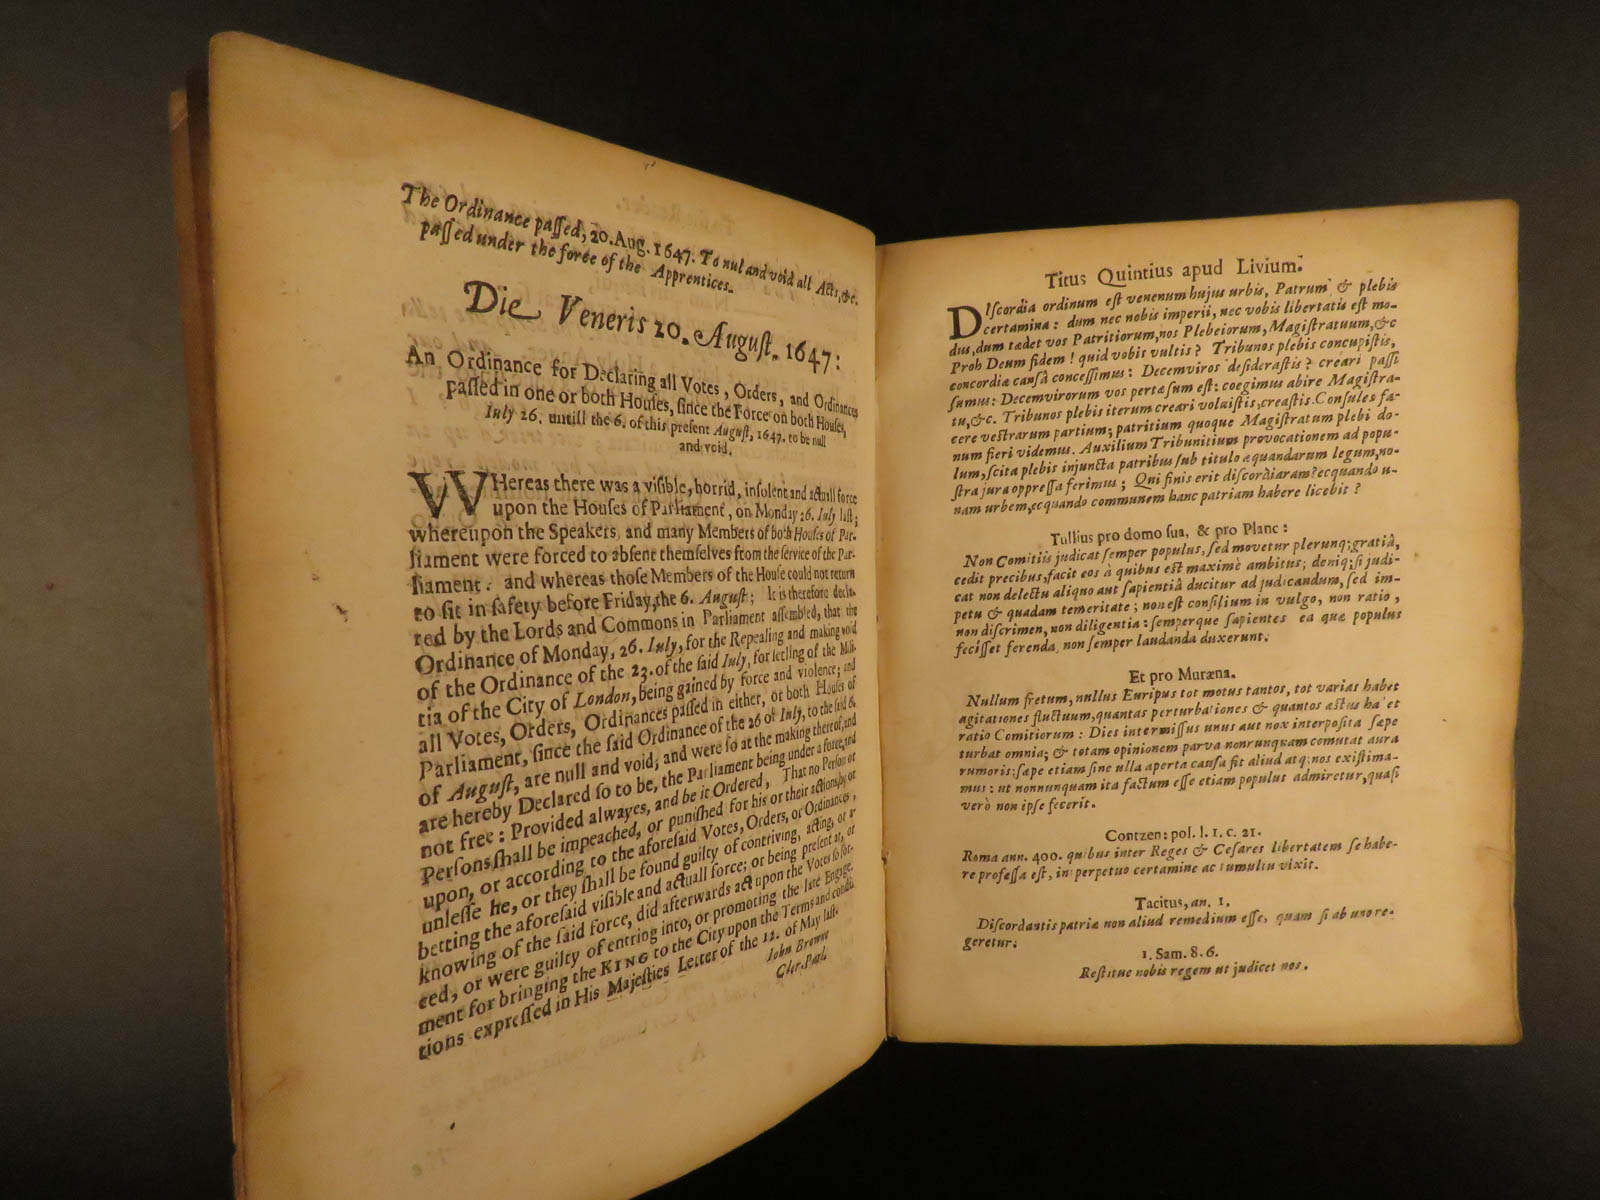 The Ordinance paſſed, 20. Aug. 1647. To nul and void all Acts, &c.
paſſed under the force of the Apprentices.
Die Veneris 20. Auguſt. 1647:
An Ordinance for Declaring all Votes, Orders, and Ordinances
paſſed in one or both Houſes, ſince the Force on both Houſes,
July 26. untill the 6. of this preſent Auguſt, 1647. to be null
and void.
WHereas there was a viſible, horrid, inſolent and actuall force
upon the Houſes of Parliament, on Monday 26. July laſt;
whereupon the Speakers, and many Members of both Houſes of Par-
liament were forced to abſent themſelves from the ſervice of the Par-
liament: and whereas thoſe Members of the Houſe could not return
to ſit in ſafety before Friday, the 6. Auguſt; It is therefore decla-
red by the Lords and Commons in Parliament aſſembled, that the
Ordinance of Monday, 26. July, for the Repealing and making void
of the Ordinance of the 23. of the ſaid July, for ſetling of the Mili-
tia of the City of London, being gained by force and violence; and
all Votes, Orders, Ordinances paſſed in either, or both Houſes of
Parliament, ſince the ſaid Ordinance of the 26 of July, to the ſaid 6.
of Auguſt, are null and void, and were ſo at the making thereof, and
are hereby Declared ſo to be, the Parliament being under a force, and
not free: Provided alwayes, and be it Ordered, That no Perſon or
Perſons ſhall be impeached, or puniſhed for his or their actions, by or
upon, or according to the aforeſaid Votes, Orders, or Ordinances,
unleſſe he, or they ſhall be found guilty of contriving, acting, or a-
betting the aforeſaid viſible and actuall force; or being preſent at, or
knowing of the ſaid force, did afterwards act upon the Votes ſo for-
ced, or were guilty of entring into, or promoting the late Engage-
ment for bringing the KING to the City upon the Terms and condi-
tions expreſſed in His Majeſties Letter of the 12. of May laſt.
John Browne
Cler. Parl.
Titus Quintius apud Livium.
DIſcordia ordinum eſt venenum hujus urbis, Patrum & plebis
certamina: dum nec nobis imperii, nec vobis libertatis eſt mo-
dus, dum tædet vos Patritiorum, nos Plebeiorum, Magiſtratuum, &c
Proh Deum fidem! quid vobis vultis? Tribunos plebis concupiſtis,
concordiæ causâ conceſſimus: Decemviros deſideraſtis? creari paſſi
ſumus: Decemvirorum vos pertæſum eſt: coegimus abire Magiſtra-
tu, &c. Tribunos plebis iterum creari voluiſtis, creaſtis. Conſules fa-
cere veſtrarum partium; patritium quoque Magiſtratum plebi do-
num fieri videmus. Auxilium Tribunitium provocationem ad popu-
lum, ſcita plebis injuncta patribus ſub titulo æquandarum legum, no-
ſtra jura oppreſſa ferimus; Qui finis erit diſcordiaram? ecquando u-
nam urbem, ecquando communem hanc patriam habere licebit?
Tullius pro domo ſua, & pro Planc:
Non Comitiis judicat ſemper populus, ſed movetur plerunq; gratiâ,
cedit precibus, facit eos à quibus eſt maximè ambitus; deniq; ſi judi-
cat non delectu aliquo aut ſapientiâ ducitur ad judicandum, ſed im-
petu & quadam temeritate; non eſt conſilium in vulgo, non ratio,
non diſcrimen, non diligentia: ſemperque ſapientes ea quæ populus
feciſſet ferenda, non ſemper laudanda duxerunt.
Et pro Muræna.
Nullum fretum, nullus Euripus tot motus tantos, tot varias habet
agitationes fluctuum, quantas perturbationes & quantos æſtus ha et
ratio Comitiorum: Dies intermiſſus unus aut nox interpoſita ſæpe
turbat omnia; & totam opinionem parva nonrunquam comutat aura
rumoris: ſæpe etiam ſine ulla aperta cauſa fit aliud atq; nos exiſtima-
mus: ut nonnunquam ita factum eſſe etiam populus admiretur, quaſi
verò non ipſe fecerit.
Contzen: pol. l. 1. c. 21.
Roma ann. 400. quibus inter Reges & Ceſares libertatem ſe habe-
re profeſſa eſt, in perpetuo certamine ac tumultu vixit.
Tacitus, an. 1.
Diſcordantis patriæ non aliud remedium eſſe, quam ſi ab uno re-
geretur.
1. Sam. 8. 6.
Reſtitue nobis regem ut judicet nos.